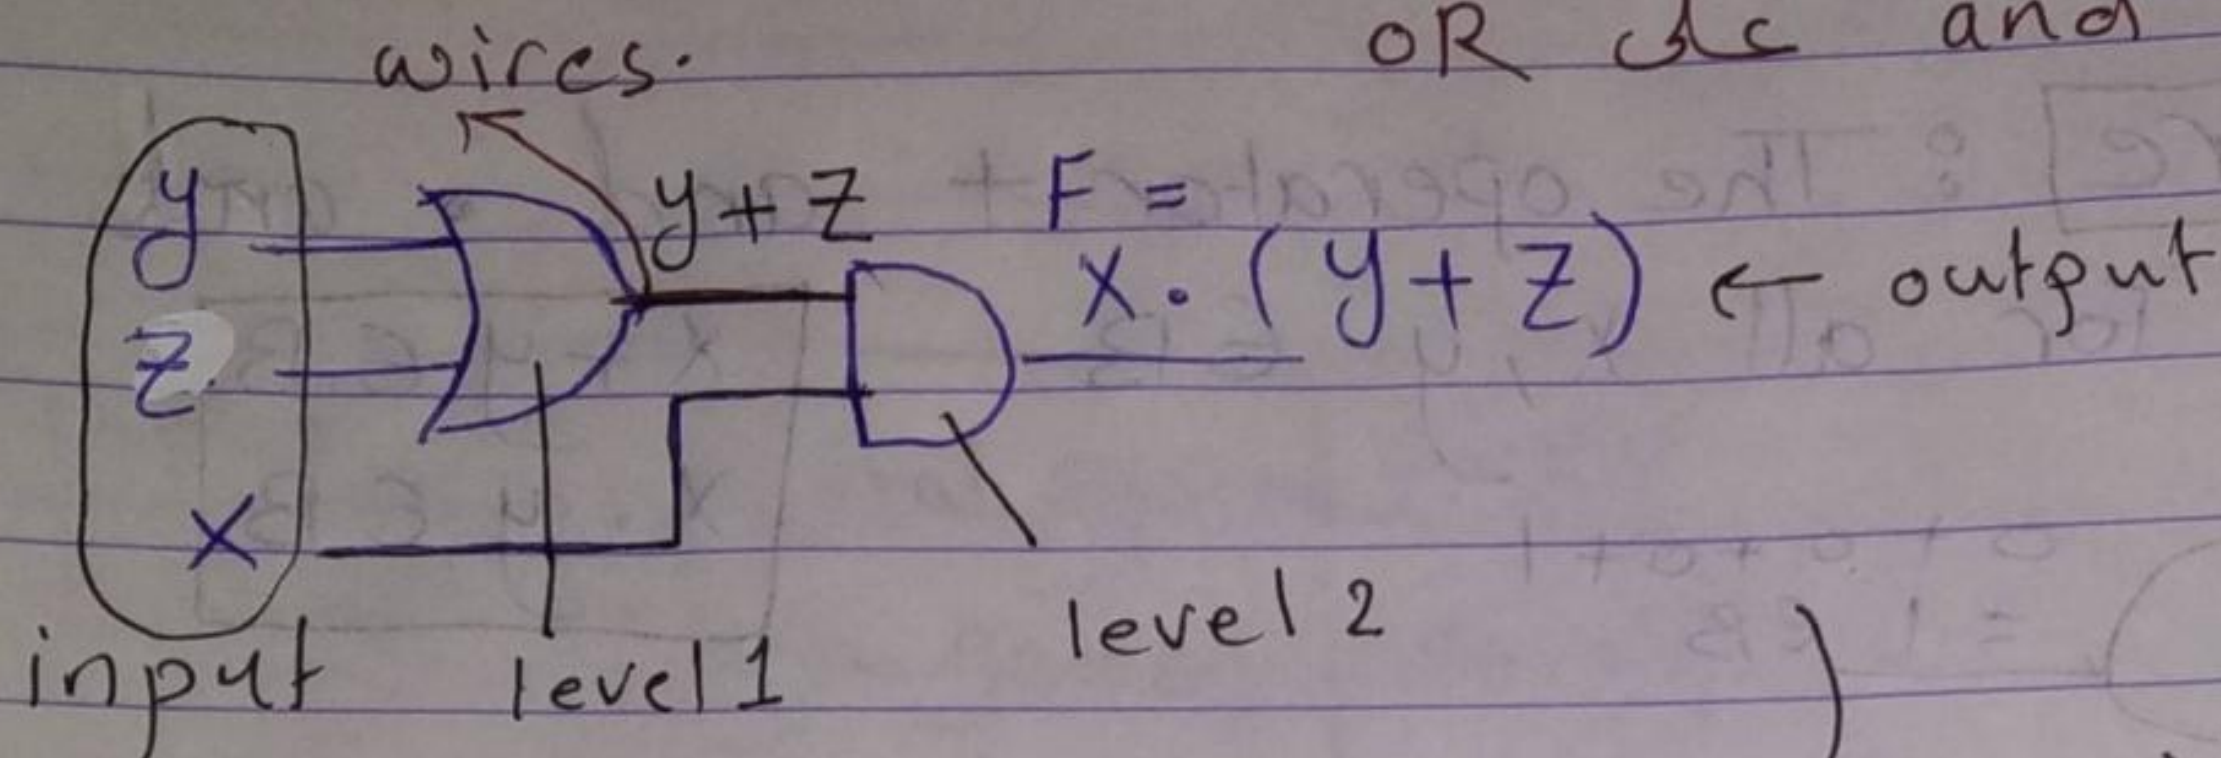 wires.
OR and
y
y+z
F =
x. (y+z) ← output
z
x
input
level 1
level 2